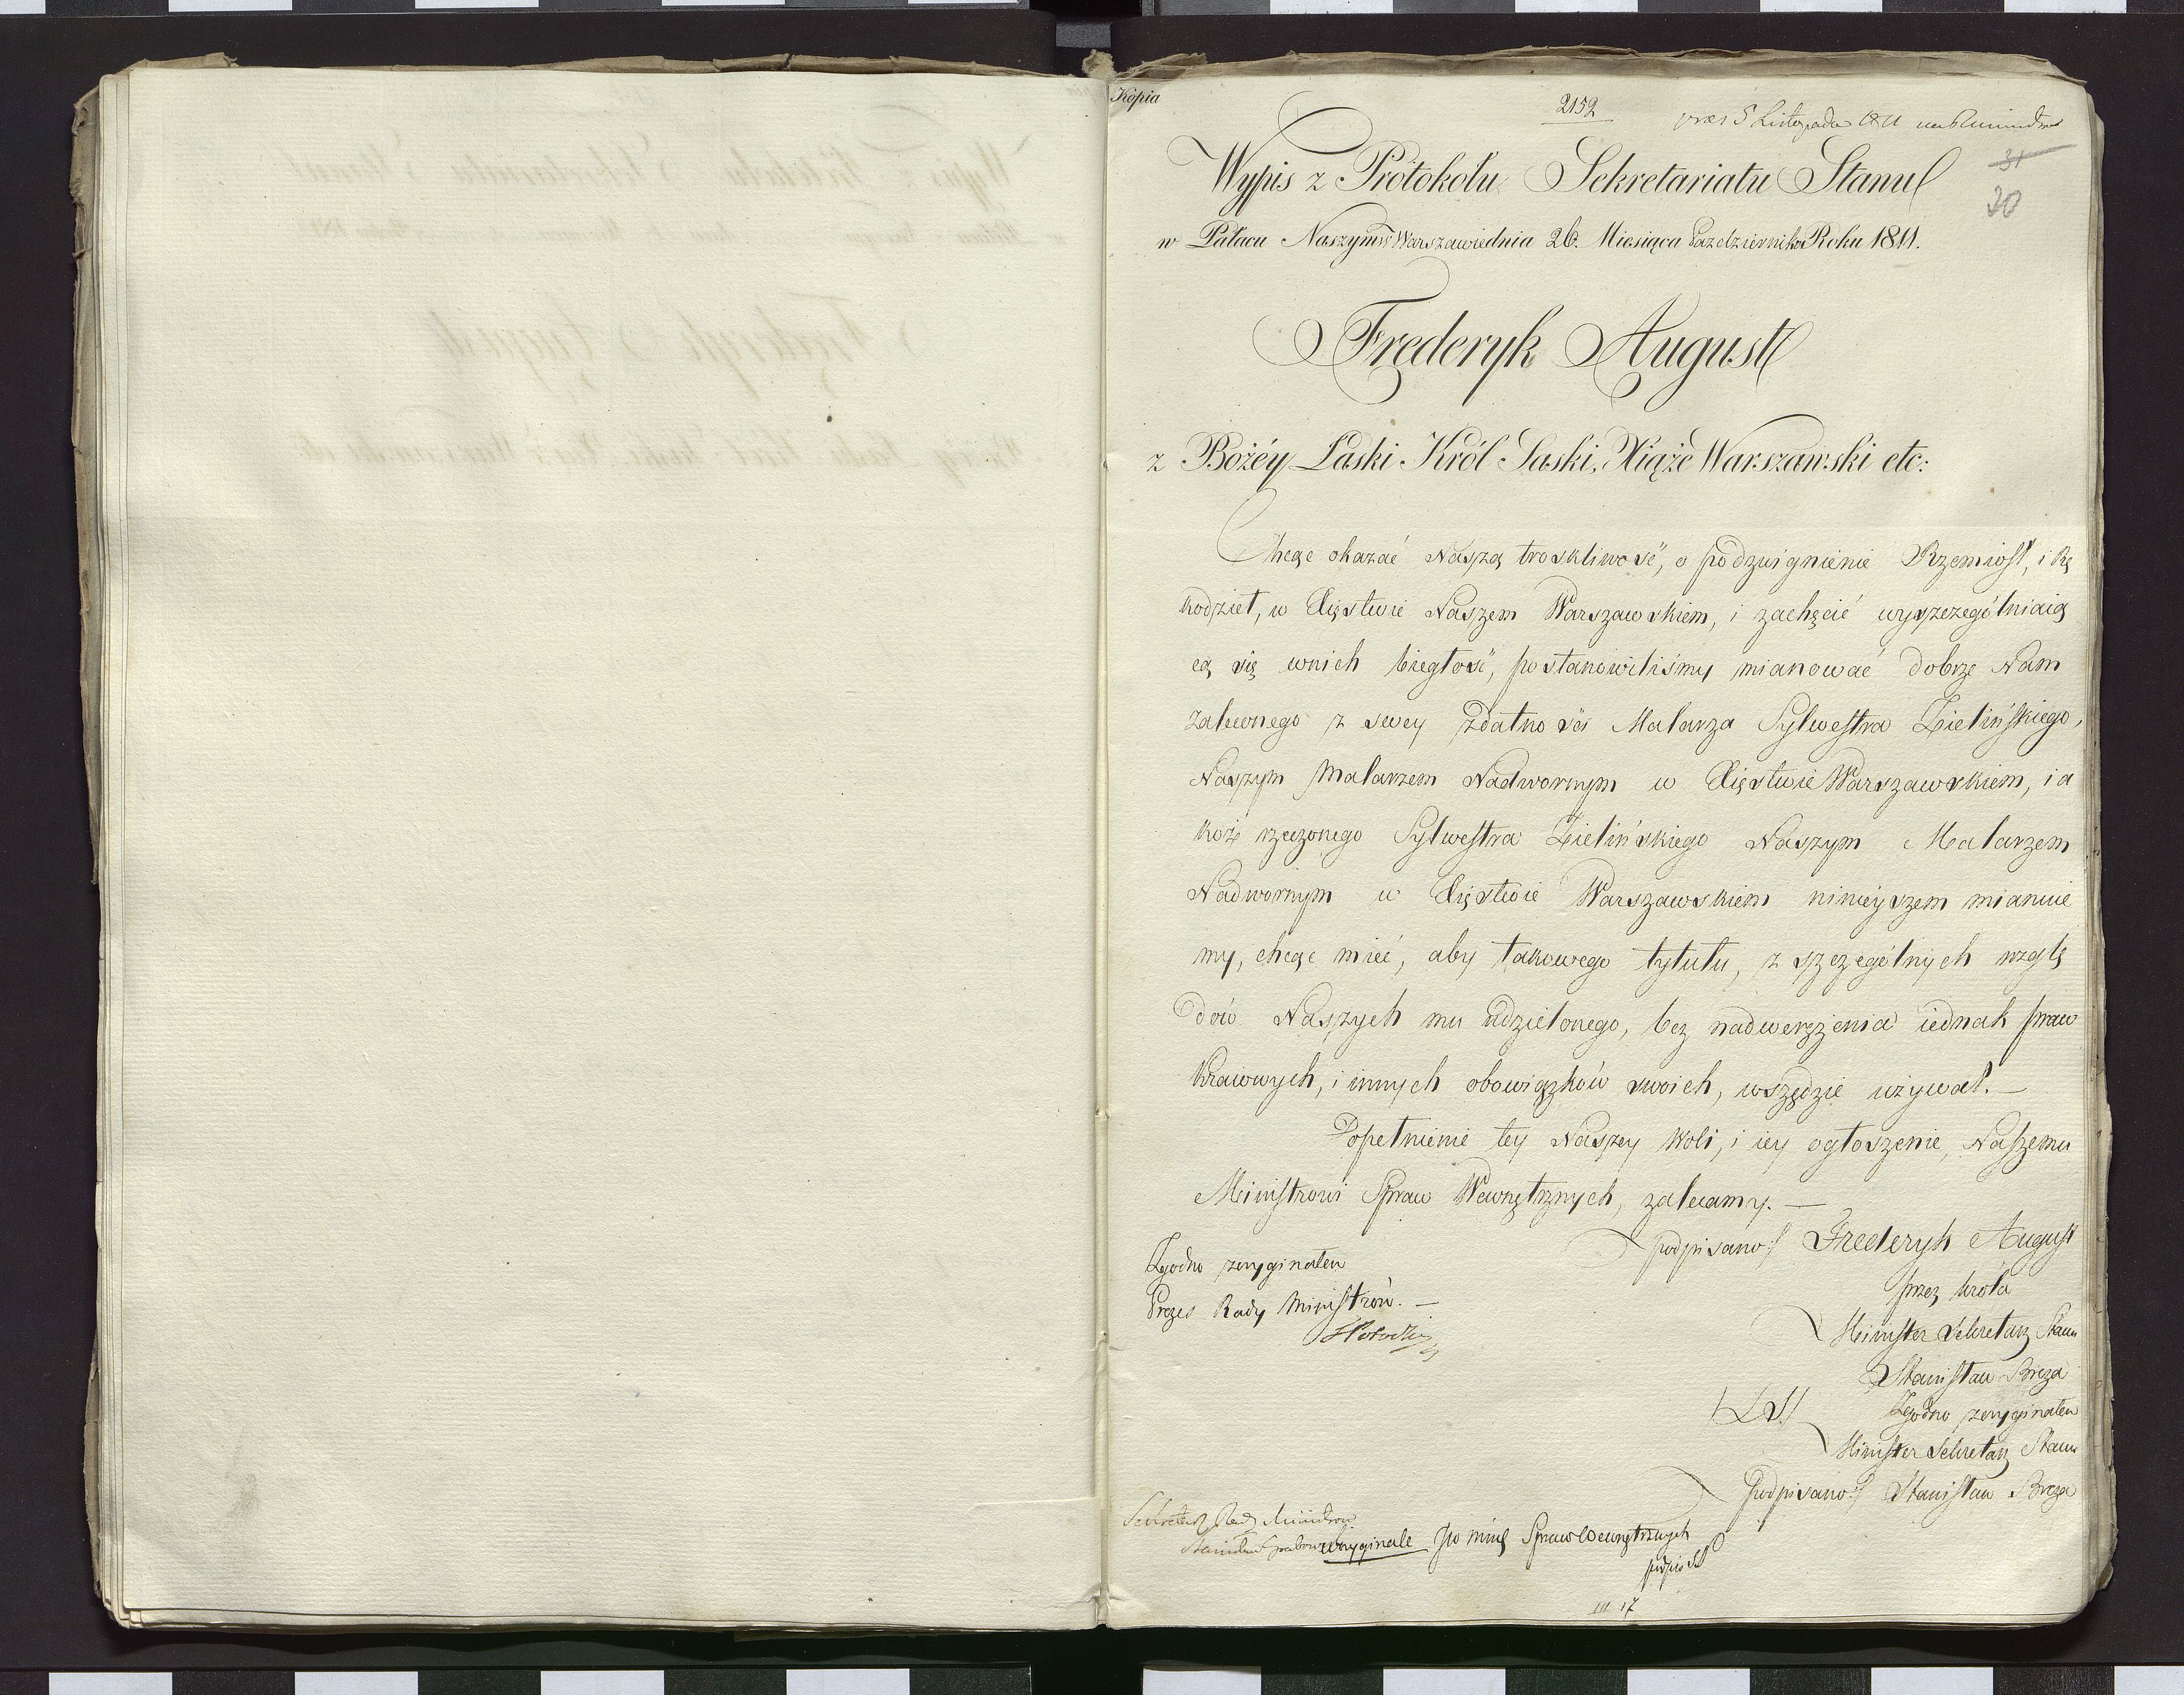 Kopia
2152
5 Listopada 1811
31
20
Wypis z Protokołu Sekretariatu Stanu
w Pałacu Naszym w Warszawie dnia 26. Miesiąca Października Roku 1811.
Frederyk August
z Bożéy Łaski Król Saski, Xiąże Warszawski etc:
Chcąc okazać Naszą troskliwość, o podzwignienie Rzemiosł, i Rę
kodzieł, w Xięstwie Naszem Warszawskiem, i zachęcić wyszczególniaią
cą się wnich biegłość, postanowiliśmy mianować dobrze Nam
zaleconego z swey zdatności Malarza Sylwestra Zielińskiego,
Naszym Malarzem Nadwornym w Xięstwie Warszawskiem, ia
koż rzeczonego Sylwestra Zielińskiego Naszym Malarzem
Nadwornym w Xięstwie Warszawskiem ninieyszem mianuie
my, chcąc mieć, aby takowego tytułu, z szczególnych wzglę
dów Naszych mu udzielonego, bez nadwerężenia iednak praw
Kraiowych, i innych obowiązków swoich, wszędzie używał. —
Dopełnienie tey Naszey Woli, i iey ogłoszenie, Naszemu
Ministrowi Spraw Wewnętrznych, zalecamy. —
podpisano:/ Frederyk August
Zgodno zoryginałem
Prezes Rady Ministrów. —
przez Króla
Minister Sekretarz Stanu
Stanisław Breza
/LS/
Zgodno zoryginałem
Minister Sekretarz Stanu
podpisano:/ Stanisław Breza
Sekretarz Rady Ministrów
Stanisław Grabowski
woryginale Jo Minę Spraw Wewnętrznych
III 17